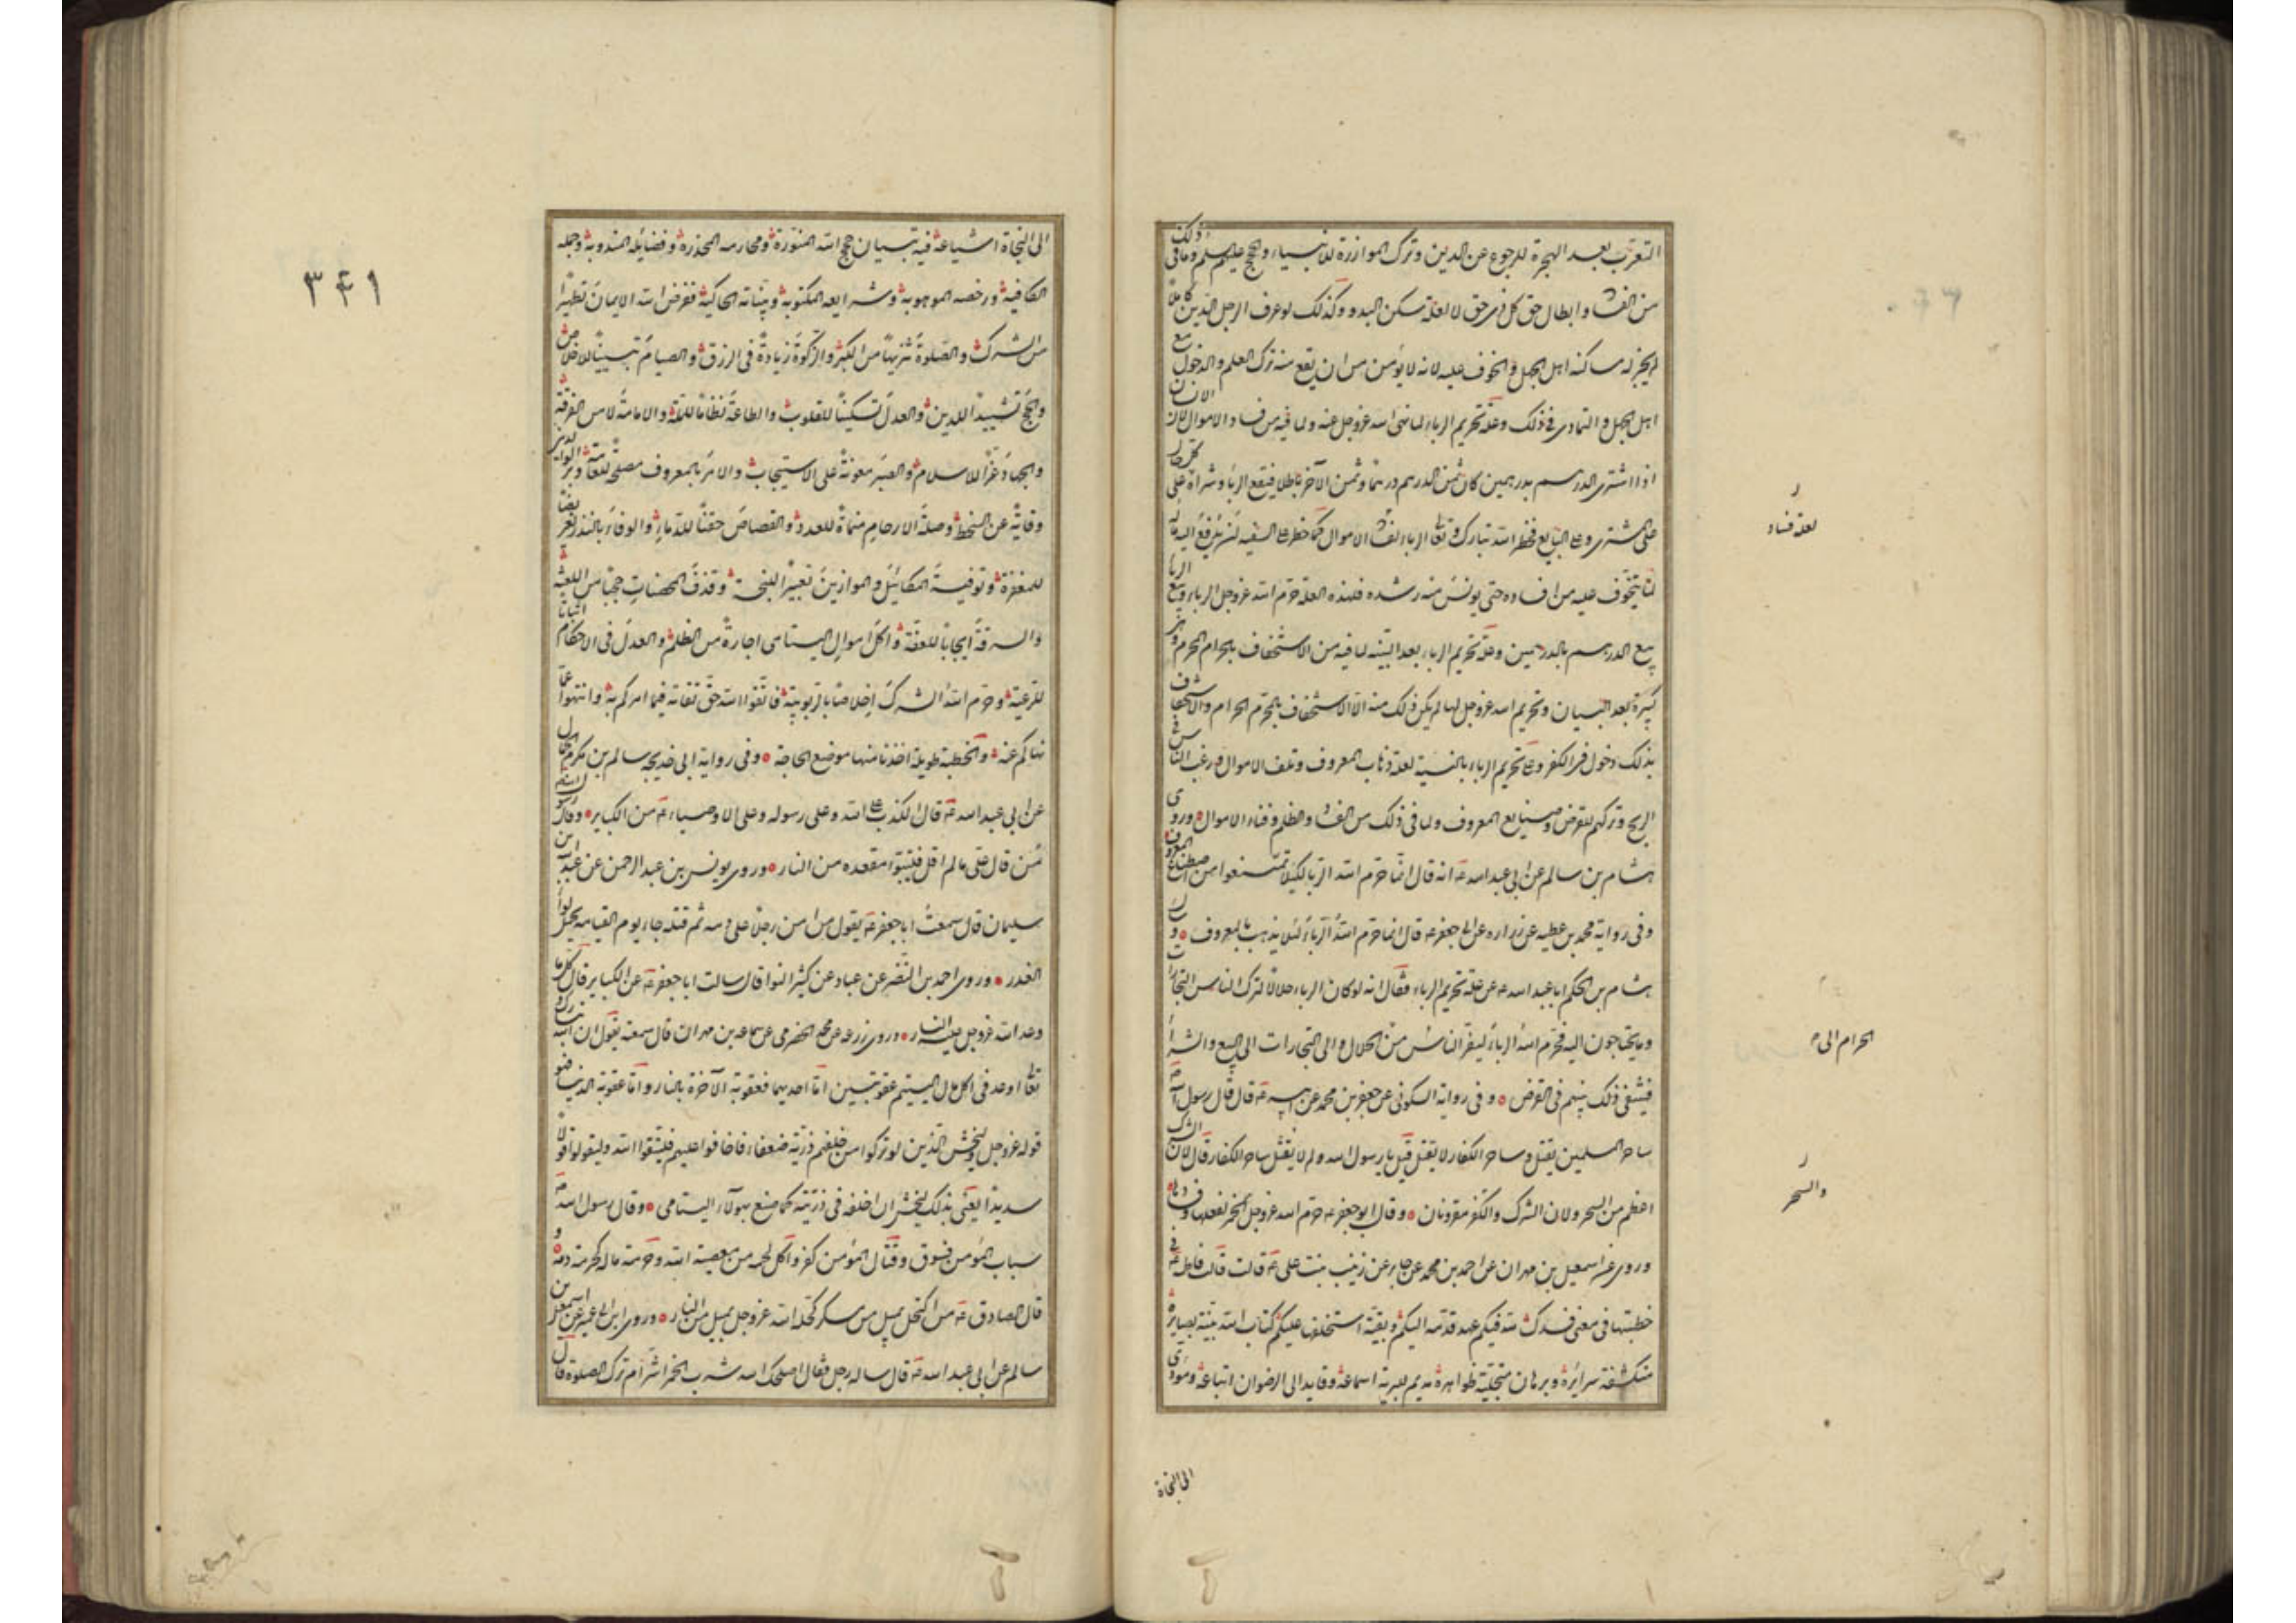 التعرب بعد الهجرة للرجوع عن الدين وترك الموازرة للانبياء والحجج عليهم السلم وما فى ذلك
من الفساد وابطال حق كل ذى حق لا لعلة سكنى البدو وكذلك لو عرف الرجل الدين كاملا
لم يجز له مساكنة اهل الجهل والخوف عليه لانه لا يؤمن من ان يقع منه ترك العلم والدخول مع
اهل الجهل والتمادى فى ذلك وعلة تحريم الرباء لما نهى الله عز وجل عنه ولما فيه من فساد الاموال لان الانسان
اذا اشترى الدرهم بدرهمين كان ثمن الدرهم درهما وثمن الآخر باطلا فبيع الرباء وشراؤه على كل حال
على المشترى وعلى البايع فحظر الله تبارك وتعالى الرباء لفساد الاموال كما حظر على السفيه ان يدفع اليه ماله
لما يتخوف عليه من افساده حتى يونس منه رشده فلهذه العلة حرم الله عز وجل الرباء وبيع الربا
بيع الدرهم بالدرهمين وعلة تحريم الرباء بعد البينة لما فيه من الاستخفاف بالحرام المحرم وهى
كبيرة بعد البيان وتحريم الله عز وجل لها لم يكن ذلك منه الا الاستخفاف بالمحرم الحرام والاستخفاف
بذلك دخول فى الكفر وعلة تحريم الرباء بالنسية لعلة ذهاب المعروف وتلف الاموال ورغبة الناس فى
الربح وتركهم للقرض وصنايع المعروف ولما فى ذلك من الفساد والظلم وفناء الاموال وروى
هشام بن سالم عن ابى عبد الله ع انه قال انما حرم الله الربا لكيلا تمتنعوا من اصطناع المعروف
وفى رواية محمد بن عطيه عن زراره عن ابى جعفر ع قال انما حرم الله الرباء لئلا يذهب المعروف وسال
هشام بن الحكم ابا عبد الله ع عن علة تحريم الرباء فقال انه لو كان الرباء حلالا لترك الناس التجارات
وما يحتاجون اليه فحرم الله الرباء ليفر الناس من الحلال والى التجارات الى البيع والشراء
فيبقى ذلك بينهم فى القرض وفى رواية السكونى عن جعفر بن محمد عن ابيه ع قال قال رسول الله ص
ساحر المسلمين يقتل وساحر الكفار لا يقتل قيل يا رسول الله ولم لا يقتل ساحر الكفار قال لان الشرك
اعظم من السحر ولان الشرك والكفر مقرونان وقال ابو جعفر ع حرم الله عز وجل الخمر لفعلها وفسادها
وروى عن اسمعيل بن مهران عن احمد بن محمد عن جابر عن زينب بنت على ع قالت قالت فاطمة ع فى
خطبتها فى معنى فدك لله فيكم عهد قدمه اليكم وبقية استخلفها عليكم كتاب الله بينة بصايره
منكشفة سرايره وبرهان متجلية ظواهره مديم للبرية استماعه وقايد الى الرضوان اتباعه ومؤدى
الى النجاة
لعلة فساد
الحرام الى
والسحر
٣٤٩
الى النجاة اشياعه فيه تبيان حجج الله المنورة ومحارمه المحذرة وفضايله المندوبة وجمله
الكافية ورخصه الموهوبة وشرايعه المكتوبة وبيناته الحاكية ففرض الله الايمان تطهيرا
من الشرك والصلوة تنزيها من الكبر والزكوة زيادة فى الرزق والصيام تبيينا للاخلاص
والحج تشييدا للدين والعدل تسكينا للقلوب والطاعة نظاما للملة والامامة لما من الفرقة
والجهاد عزا للاسلام والصبر معونة على الاستيجاب والامر بالمعروف مصلحة للعامة وبر الوالدين
وقاية عن السخط وصلة الارحام منماة للعدد والقصاص حقنا للدماء والوفاء بالنذر تعريضا
للمغفرة وتوفية المكائيل والموازين تعييرا للبخسة وقذف المحصنات حجبا من اللعنة
والسرقة ايجابا للعفة واكل اموال اليتامى اجارة من الظلم والعدل فى الاحكام ايناسا
للرعية وحرم الله الشرك اخلاصا بالربوبية فاتقوا الله حق تقاته فيما امركم به وانتهوا عما
نهاكم عنه والخطبة طويلة اخذنا منها موضع الحاجة وفى رواية ابى خديجه سالم بن مكرم الجمال
عن ابى عبد الله ع قال الكذب على الله وعلى رسوله وعلى الاوصياء ع من الكباير وقال رسول الله ص
من قال على ما لم اقل فليتبوا مقعده من النار وروى يونس بن عبد الرحمن عن عبد الله بن
سليمان قال سمعت ابا جعفر ع يقول من امن رجلا على دمه ثم قتله جاء يوم القيامة يحمل لواء
الغدر وروى احمد بن النضر عن عباد عن كثير النوا قال سالت ابا جعفر ع عن الكباير قال كل ما
وعد الله عز وجل عليه النار وروى زرعه عن محمد الحضرمى عن سماعه بن مهران قال سمعته يقول ان الله تبارك و
تعالى اوعد فى اكل مال اليتيم عقوبتين اما احديهما فعقوبة الآخرة بالنار واما عقوبة الدنيا فهو
قوله عز وجل وليخش الذين لو تركوا من خلفهم ذرية ضعفاء خافوا عليهم فليتقوا الله وليقولوا قولا
سديدا يعنى بذلك ليخش ان اخلفه فى ذريته كما صنع بهولاء اليتامى وقال رسول الله ص
سباب المؤمن فسوق وقتال المؤمن كفر واكل لحمه من معصية الله وحرمة ماله كحرمة دمه و
قال الصادق ع من اكتحل بميل من مسكر كحله الله عز وجل بميل من النار وروى ابن ابى عمير عن اسمعيل بن
سالم عن ابى عبد الله ع قال ساله رجل فقال اصلحك الله شرب الخمر اشر ام ترك الصلوة قال